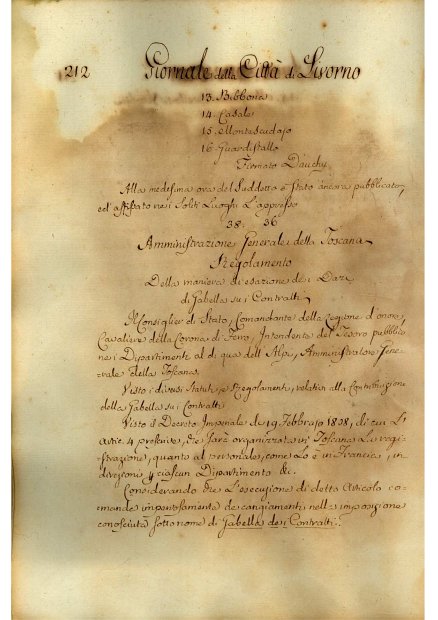 212 Giornale della Città di Livorno
13. Bibbona
14. Casale
15. Montescudajo
16. Guardistallo
Firmato Dauchy
Alla medesima ora del Suddetto è stato ancora pubblicato,
ed affissato nei Soliti Luoghi L'appresso
38. 36
Amministrazione Generale della Toscana
Regolamento
Della maniera di esazione dei Dazi
di Gabella sui Contratti
Il Consiglier di Stato, Comandante della Legione d'onore,
Cavaliere della Corona di Ferro, Intendente del Tesoro pubblico
nei Dipartimenti al di qua dell'Alpi, Amministratore Gene-
rale della Toscana
Visto i diversi Statuti, e Regolamenti, relativi alla Contribuzione
della Gabella sui Contratti
Visto il Decreto Imperiale de 19 Febbrajo 1808, di cui L'
Artic. 4 prescrive, che sarà organizzata in Toscana La regi-
strazione, quanto al personale, come Lo è in Francia, in
direzione p ciascun Dipartimento &c.
Considerando che L'esecuzione di detto Articolo co-
manda imperiosamente de cangiamenti nella imposizione
conosciuta sotto nome di Gabella dei Contratti.